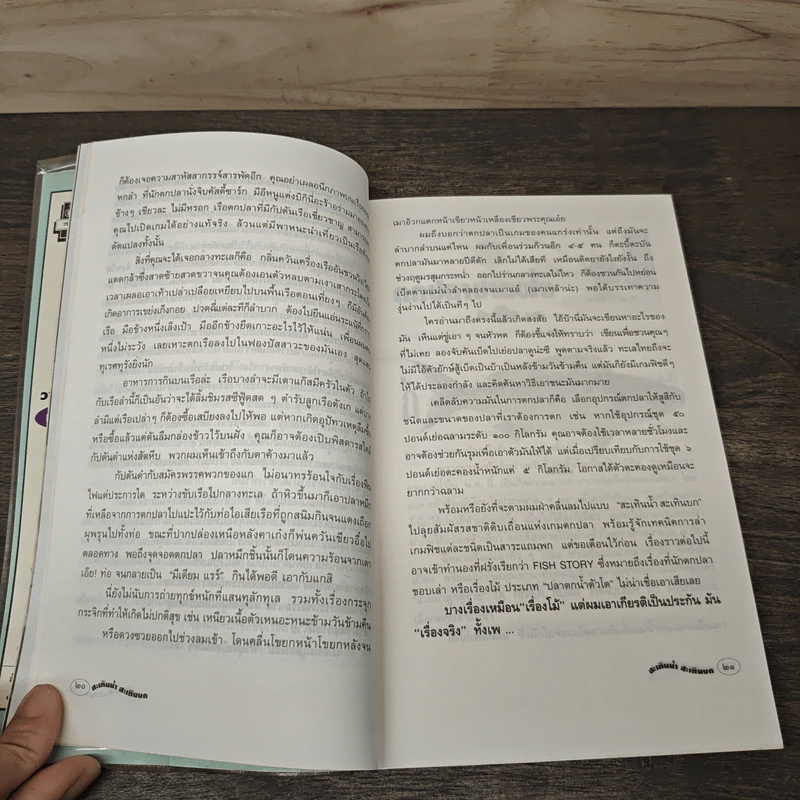 ก็ต้องเจอความสาหัสสากรรจ์สารพัดอีก คุณอย่าเผลอนึกภาพบนเรือยอช
หกลำ ที่นักตกปลานั่งจิบคัสตี้ซาร์ก มีอีหนูแต่งบิกินี่อะร้าอร่ามมา
ข้างๆ เชียวละ ไม่มีหรอก เรือตกปลาที่มีกัปตันเรือเชี่ยวชาญ สามารถ
คุณไปเปิดเกมได้อย่างแท้จริง ล้วนแต่มีพาหนะนำเที่ยวเป็นเรือ
ดัดแปลงทั้งนั้น
สิ่งที่คุณจะได้เจอกลางทะเลก็คือ กลิ่นควันเครื่องเรืออันชวน
แดดกล้าซึ่งสาดซ้ายสาดขวาจนคุณต้องเอนตัวหลบตามเงาเสากระโดง
เวลาเผลอเอาเท้าเปล่าเปลือยเหยียบไปบนพื้นเรือตอนเที่ยงๆ ก็มี
เกิดอาการเขย่งเก็งกอย ปวดฉี่แต่ละทีก็ลำบาก ต้องไปยืนแอ่น
เรือ มือข้างหนึ่งเล็งเป้า มืออีกข้างยึดเกาะอะไรไว้ให้แน่น เพื่อ
หนึ่งไม่ระวัง เลยเหาะตกเรือลงไปในฟองปัสสาวะของมันเอง
ทุเรศทุรังยิ่งนัก
อาหารการกินบนเรือล่ะ เรือบางลำจะมีเตาแก๊สมีครัวในตัว ถ้า
กับเรือลำนี้ก็เป็นอันว่าจะได้ลิ้มชิมรสซีฟู้ดสด ๆ ตำรับลูกเรือดังเก แต่บาง
ลำมีแต่เรือเปล่าๆ ก็ต้องซื้อเสบียงลงไปให้พอ แต่หากเกิดอุปัทวเหตุลืม
หรือซื้อแล้วแต่ดันลืมกล่องข้าวไว้บนฝั่ง คุณก็อาจต้องเป็นพิสดารสไตล์
กัปตันดำแห่งสัตหีบ พวกผมเห็นเข้าถึงกับตาค้างมาแล้ว
กัปตันดำกับสมัครพรรคพวกของแก ไม่อนาทรร้อนใจกับเรื่องฟืน
ไฟแต่ประการใด ระหว่างขับเรือไปกลางทะเล ถ้าหิวขึ้นมาก็เอาปลาหมึก
ที่เหลือจากการตกปลาไปแปะไว้กับท่อไอเสียเรือที่ถูกสนิมกินจนแดงเถือก
ผุพรุนไปทั้งท่อ ขณะที่ปากปล่องเหนือหลังคาเก๋งก็พ่นควันเขียวอื๋อไป
ตลอดทาง พอถึงจุดจอดตกปลา ปลาหมึกชิ้นนั้นก็โดนความร้อนจากเตา
เอ้ย! ท่อ จนกลายเป็น “มีเดียม แรร์” กินได้พอดี เอากับแกสิ
นี่ยังไม่นับการถ่ายทุกข์หนักที่แสนทุลักทุเล รวมทั้งเรื่องกระจุก
กระจิกที่ทำให้เกิดไม่ปกติสุข เช่น เหนียวเนื้อตัวเหนอะหนะข้ามวันข้ามคืน
หรือดวงซวยออกไปช่วงลมเข้า โดนคลื่นโขยกหน้าโขยกหลังจน
๒๐ สะเทินน้ำ สะเทินบก
เมาอ้วกแตกหน้าเขียวหน้าเหลืองเชียวพระคุณเอ๋ย
ผมถึงบอกว่าตกปลาเป็นเกมของคนแกร่งเท่านั้น แต่ถึงมันจะ
ลำบากลำบนแค่ไหน ผมกับเพื่อนร่วมก๊วนอีก ๔-๕ คน ก็ตะบี้ตะบัน
ตกปลามันมาหลายปีดีดัก เลิกไม่ได้เสียที เหมือนติดยายังไงยังงั้น ถึง
ช่วงฤดูมรสุมกระหน่ำ ออกไปร่านกลางทะเลไม่ไหว ก็ต้องชวนกันไปหย่อน
เบ็ดตามแม่น้ำลำคลองจนเมาแอ๋ (เมาเหล้าน่ะ) พอได้บรรเทาความ
งุ่นง่านไปได้เป็นทีๆ ไป
ใครอ่านมาถึงตรงนี้แล้วเกิดสงสัย ไอ้บ้านี่มันจะเขียนหาอะไรของ
มัน เห็นแต่ขู่เอา ๆ จนหัวหด ก็ต้องชี้แจงให้ทราบว่า เขียนเพื่อชวนคุณๆ
ที่ไม่เคย ลองจับคันเบ็ดไปเย่อปลาดูน่ะซี พูดตามจริงแล้ว ทะเลไทยถึงจะ
ไม่มีไอ้ตัวยักษ์สู้เบ็ดเป็นบ้าเป็นหลังข้ามวันข้ามคืน แต่มันก็ยังมีเกมฟิชดีๆ
ให้ได้ประลองกำลัง และคิดค้นหาวิธีเอาชนะมันมากมาย
เคล็ดลับความมันในการตกปลาก็คือ เลือกอุปกรณ์ตกปลาให้สูสีกับ
ชนิดและขนาดของปลาที่เราต้องการตก เช่น หากใช้อุปกรณ์ชุด ๕๐
ปอนด์เย่อฉลามระดับ ๑๐๐ กิโลกรัม คุณอาจต้องใช้เวลาหลายชั่วโมงและ
อาจต้องช่วยกันรุมเพื่อเอาตัวมันให้ได้ แต่เมื่อเปรียบเทียบกับการใช้ชุด ๖
ปอนด์เย่อตะคองน้ำหนักแค่ ๕ กิโลกรัม โอกาสได้ตัวตะคองดูเหมือนจะ
ยากกว่าฉลาม
พร้อมหรือยังที่จะตามผมฝ่าคลื่นลมไปแบบ “สะเทินน้ำ สะเทินบก”
ไปลุยสัมผัสรสชาติดิบเถื่อนแห่งเกมตกปลา พร้อมรู้จักเทคนิคการล่า
เกมฟิชแต่ละชนิดเป็นสาระแถมพก แต่ขอเตือนไว้ก่อน เรื่องราวต่อไปนี้
อาจเข้าทำนองที่ฝรั่งเรียกว่า FISH STORY ซึ่งหมายถึงเรื่องที่นักตกปลา
ชอบเล่า หรือเรื่องโม้ ประเภท “ปลาตกน้ำตัวโต” ไม่น่าเชื่อเอาเสียเลย
บางเรื่องเหมือน“เรื่องโม้” แต่ผมเอาเกียรติเป็นประกัน มัน
“เรื่องจริง” ทั้งเพ ...
สะเทินน้ำ สะเทินบก ๒๑